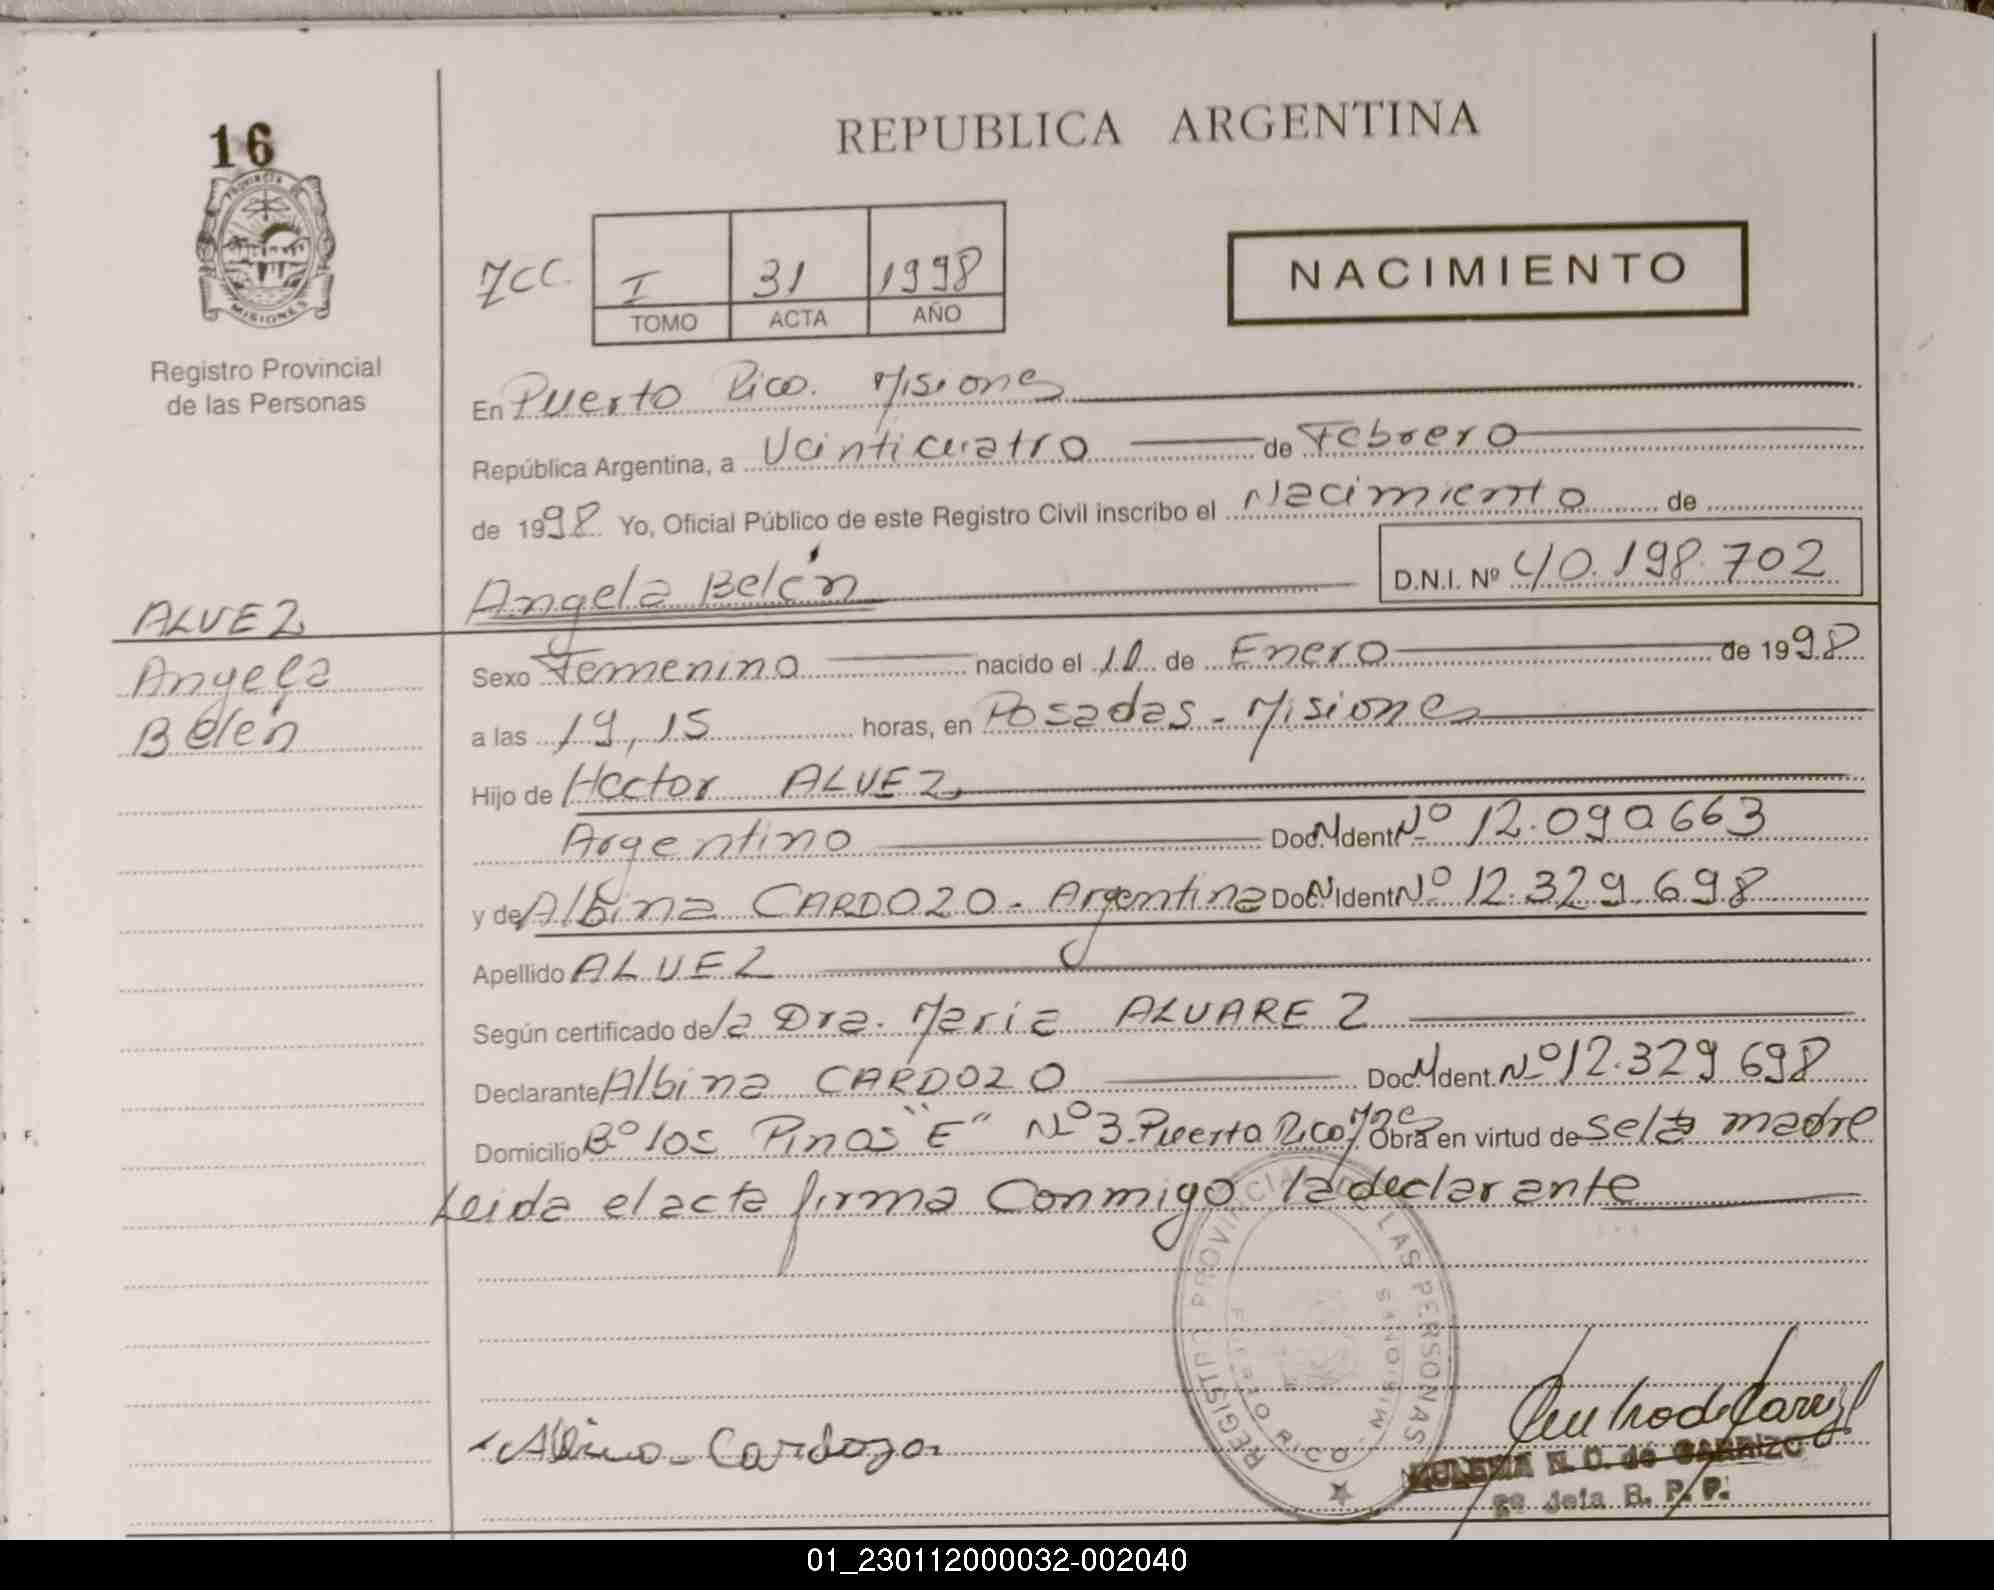 16
PROVINCIA DE
MISIONES
Registro Provincial
de las Personas
REPUBLICA ARGENTINA
NACIMIENTO
I 31 1998
TOMO ACTA AÑO
En Puerto Rico. Misiones
República Argentina, a Veinticuatro de Febrero
de 1998 Yo, Oficial Público de este Registro Civil inscribo el Nacimiento de
Angela Belén D.N.I. Nº 40.198.702
ALVEZ
Angela
Belén
Sexo Femenino nacido el de Enero de 1998
a las 19,15 horas, en Posadas - Misiones
Hijo de Hector ALVEZ
Argentino Doc. Ident Nº 12.090.663
y de Albina CARDOZO - Argentina Doc. Ident Nº 12.329.698
Apellido ALVEZ
Según certificado de la Dra. Maria ALVAREZ
Declarante Albina CARDOZO Doc. Ident. Nº 12.329.698
Domicilio Bº los Pinos "E" Nº 3 - Puerto Rico Obra en virtud de ser la madre
Leida el acta firma Conmigo la declarante
REGISTRO PROVINCIAL DE LAS PERSONAS
PUERTO RICO - MISIONES
Albina - Cardozo
N. C. de CARRIZO
R. P. P.
01_230112000032-002040